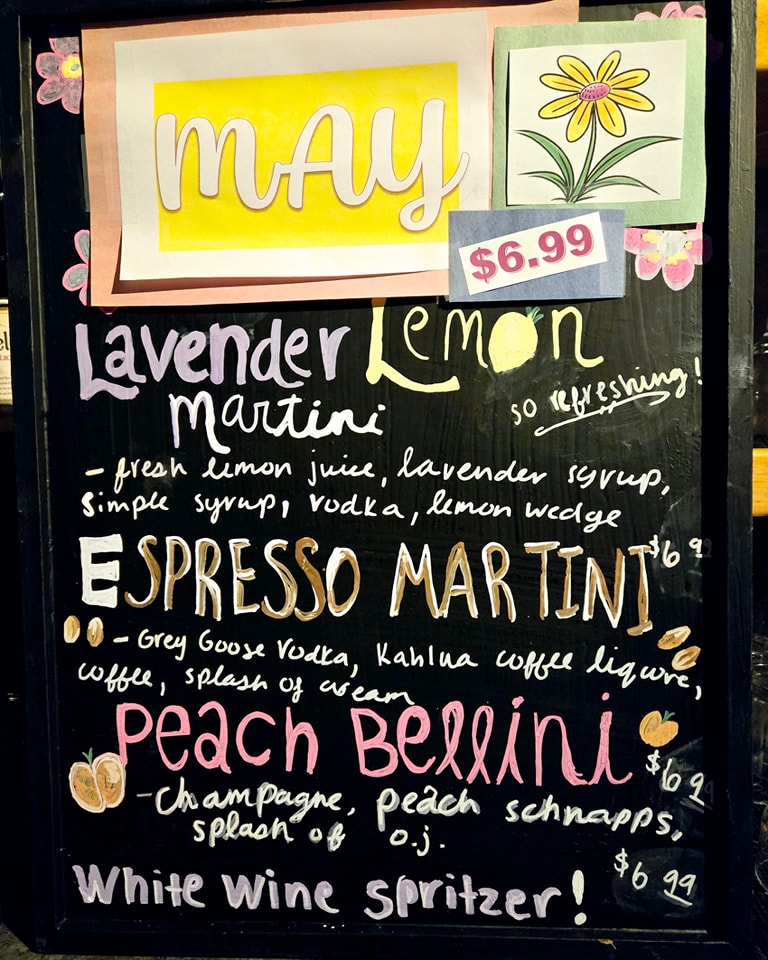 MAY
$6.99
Lavender Lemon
Martini
so refreshing!
- fresh lemon juice, lavender syrup,
simple syrup, vodka, lemon wedge
ESPRESSO MARTINI $6 99
- Grey Goose Vodka, Kahlua coffee liquore,
coffee, splash of cream
Peach Bellini
$6 9
- Champagne, peach schnapps,
splash of o.j.
$6 99
White wine spritzer!